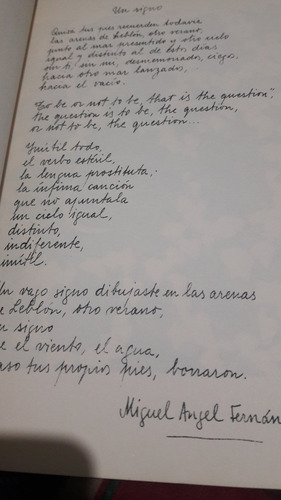 Un signo
Quizá tus pies recuerden todavía
las arenas de Leblón, otro verano,
junto al mar presentido y otro cielo
igual y distinto al de estos días
sin ti, sin mí, desmemoriados, ciegos,
hacia otro mar lanzados,
hacia el vacío.
"To be or not to be, that is the question",
the question is to be, the question,
or not to be, the question...
Inútil todo,
el verbo estéril,
la lengua prostituta,
la ínfima canción
que no apuntala
un cielo igual,
distinto,
indiferente,
inútil.
Un vago signo dibujaste en las arenas
Leblón, otro verano,
signo
el viento, el agua,
tus propios pies, borraron.
Miguel Angel Fernán